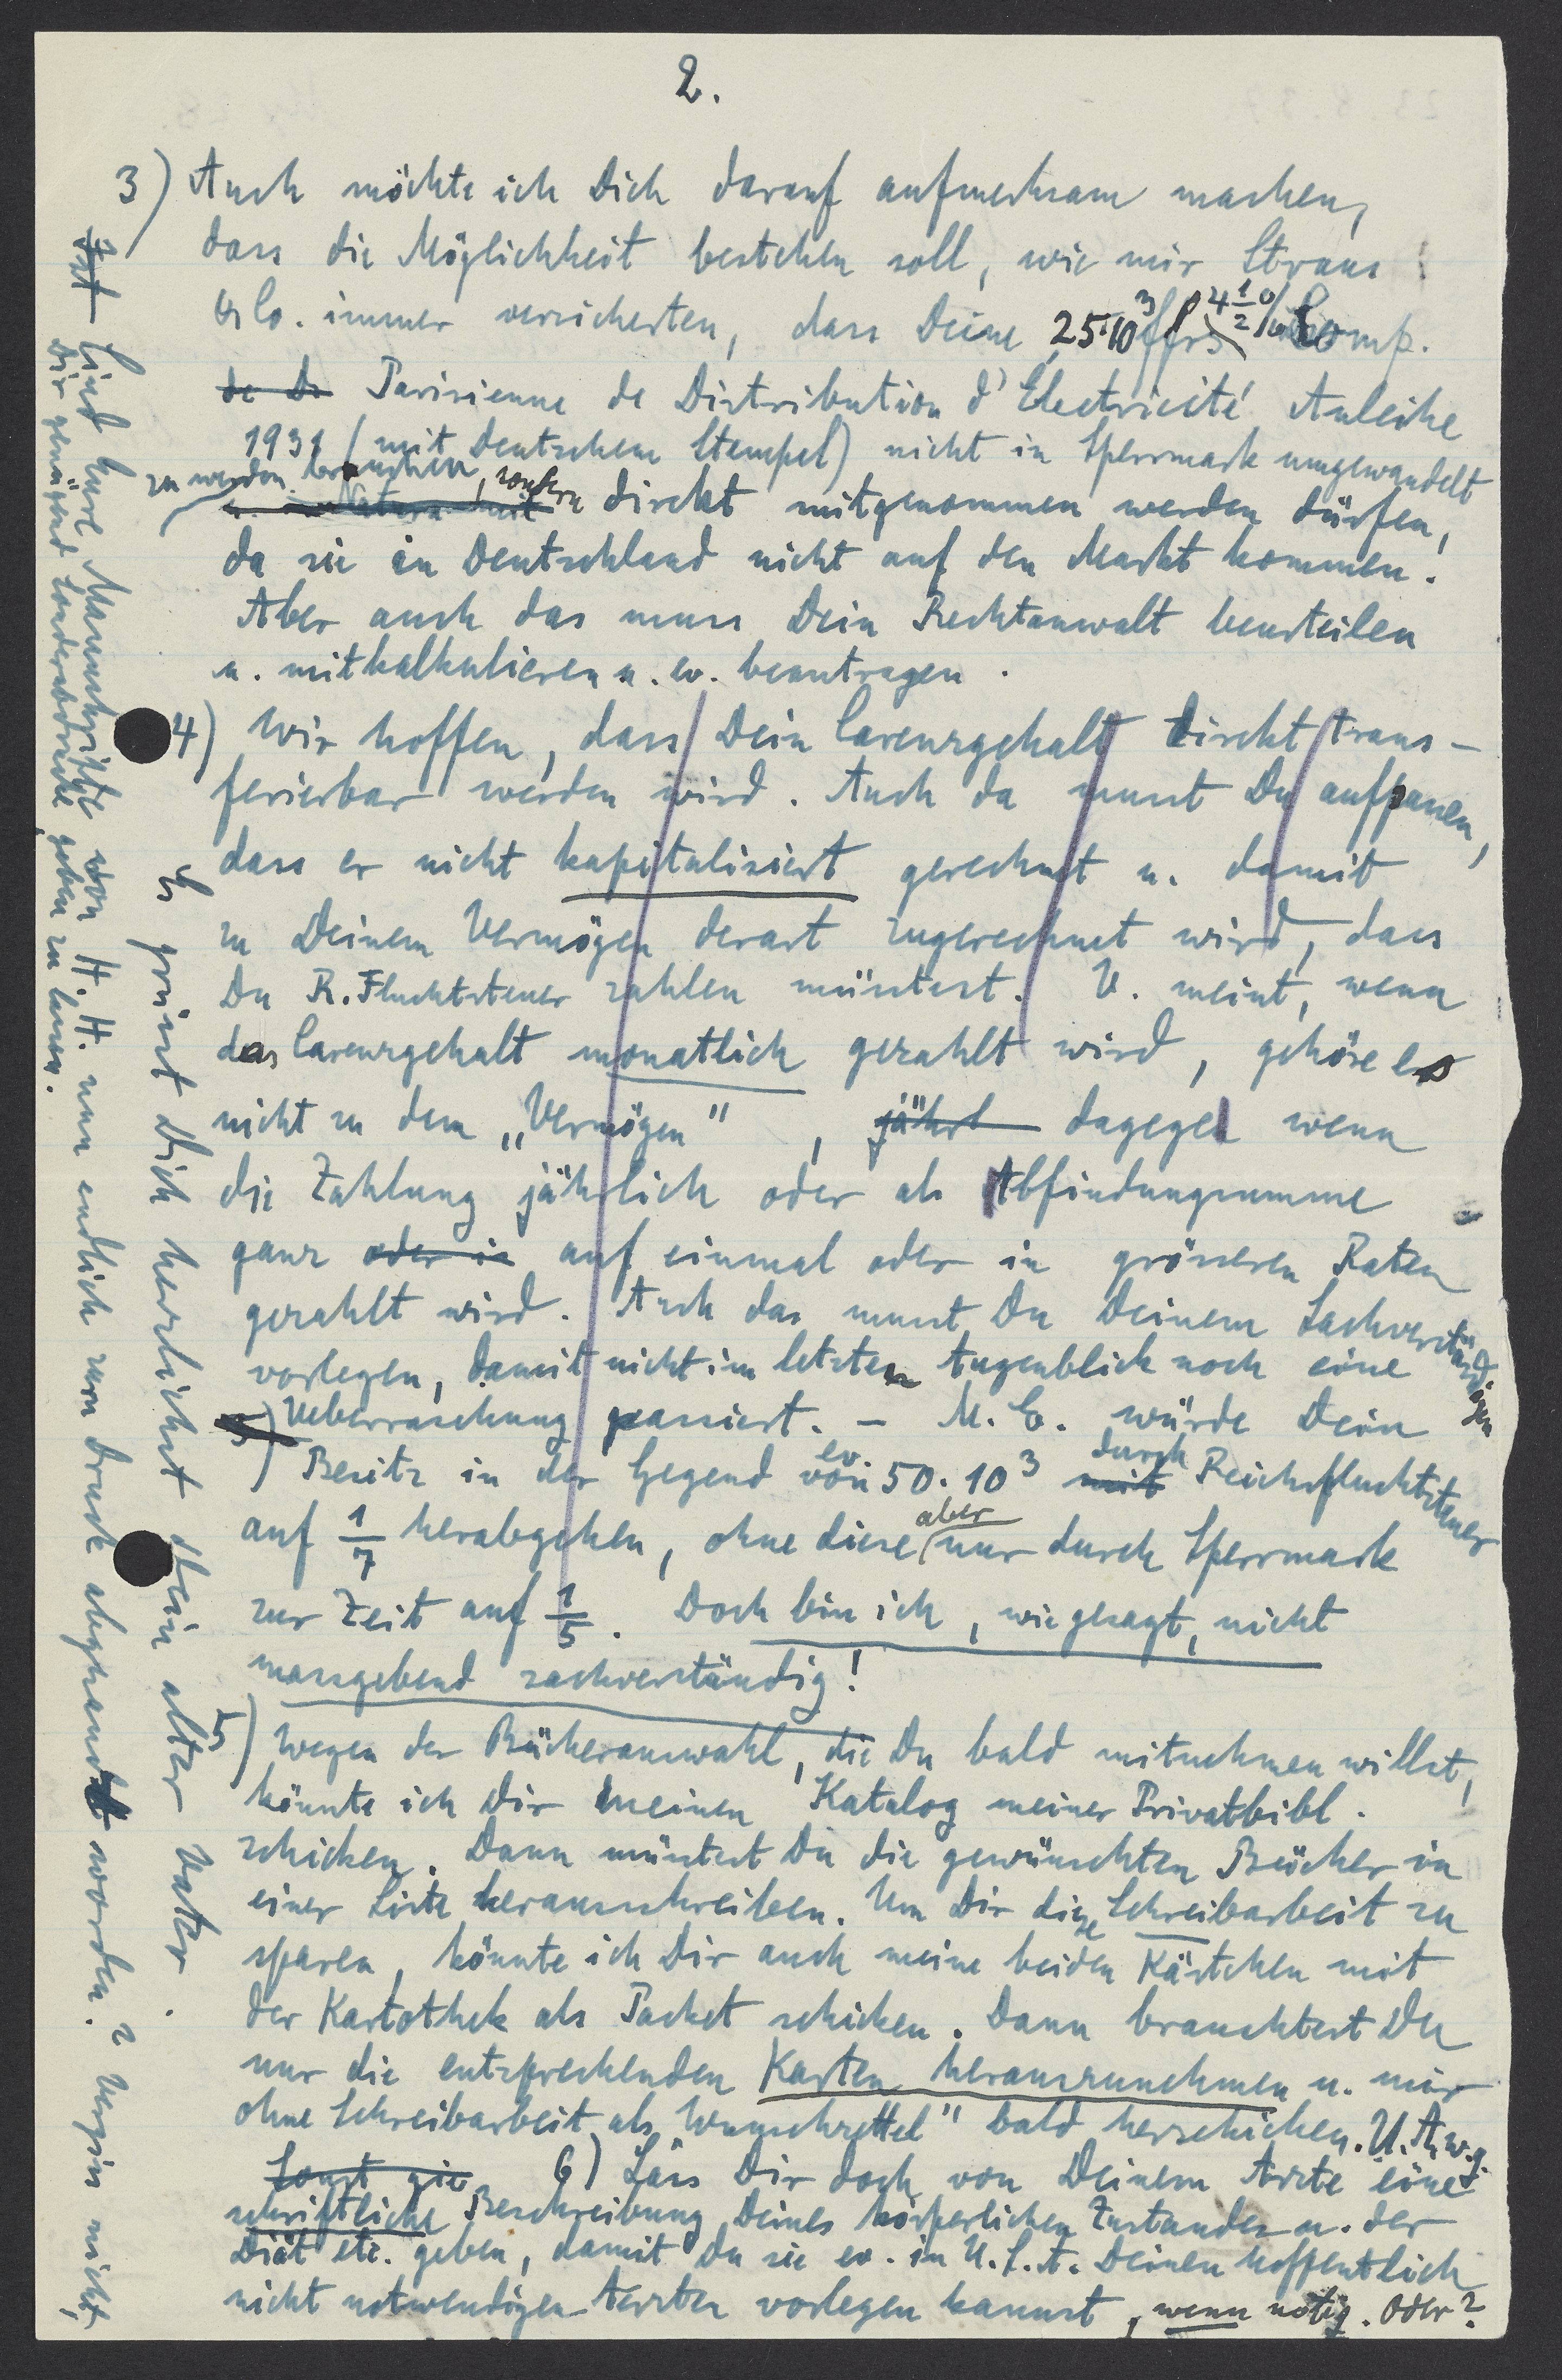 2.
3) Auch möchte ich Dich darauf aufmerksam machen,
dass die Möglichkeit bestehen soll, wie mir Straus
& Co. immer versicherten, dass Deine 25·10³ ffrs 4 1/2 % Comp.
de Di Parisienne de Distribution d'Electricité Anleihe
1931 (mit deutschem Stempel) nicht in Sperrmark umgewandelt
zu werden brauchen, sondern direkt mitgenommen werden dürfen,
da sie in Deutschland nicht auf den Markt kommen.
Aber auch das muss Dein Rechtanwalt beurteilen
u. mitkalkulieren u. ev. beantragen.
4) Wir hoffen, dass Dein Carenzgehalt direkt trans-
ferierbar werden wird. Auch da musst Du aufpassen,
dass er nicht kapitalisiert gerechnet u. damit
zu Deinem Vermögen derart zugerechnet wird, dass
Du R. Fluchtsteuer zahlen müsstest. V. meint, wenn
das Carenzgehalt monatlich gezahlt wird, gehöre es
nicht zu dem „Vermögen", jährl dagegen wenn
die Zahlung jährlich oder als Abfindungsumme
ganz oder in auf einmal oder in grösseren Raten
gezahlt wird. Auch das musst Du Deinem Sachverständigen
vorlegen, damit nicht im letzten Augenblick noch eine
Ueberraschung passiert. – M. E. würde Dein
Besitz in der Gegend von ev 50·10³ mit durch Reichsfluchtsteuer
auf 1/7 herabgehen, ohne diese aber nur durch Sperrmark
zur Zeit auf 1/5. Doch bin ich, wie gesagt, nicht
massgebend sachverständig!
5) Wegen der Bücherauswahl, die Du bald mitnehmen willst,
könnte ich Dir meinen Katalog meiner Privatbibl.
schicken. Dann müsstest Du die gewünschten Bücher in
einer Liste herausschreiben. Um Dir diese Schreibarbeit zu
sparen, könnte ich Dir auch meine beiden Kästchen mit
der Kartothek als Packet schicken. Dann brauchtest Du
nur die entsprechenden Karten herauszunehmen u. mir
ohne Schreibarbeit als „Wunschzettel" bald herschicken. U. A. w. g.
Sonst gie 6) Lass Dir doch von Deinem Arzte eine
schriftliche Beschreibung Deines körperlichen Zustandes u. der
Diät etc. geben, damit Du sie ev. in U.S.A. Deinen hoffentlich
nicht notwendigen Aerzten vorlegen kannst, wenn nötig. Oder?
Es grüsst Dich herzlichst Dein alter Vater.
Ist Sind Eure Manuskripte von H. H. nun endlich zum Druck abgesandt worden? Vergiss nicht,
Dir genügend Sonderabdrücke geben zu lassen.